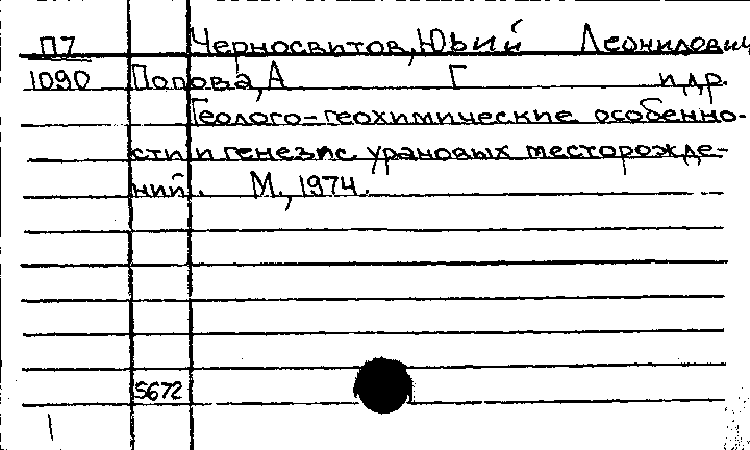 П7 Черносвитов, Юрий Леонидович
1090 Попова, А Г и др.
Геолого-геохимические особенно-
сти и генезис урановых месторожде-
ний. М., 1974.
5672